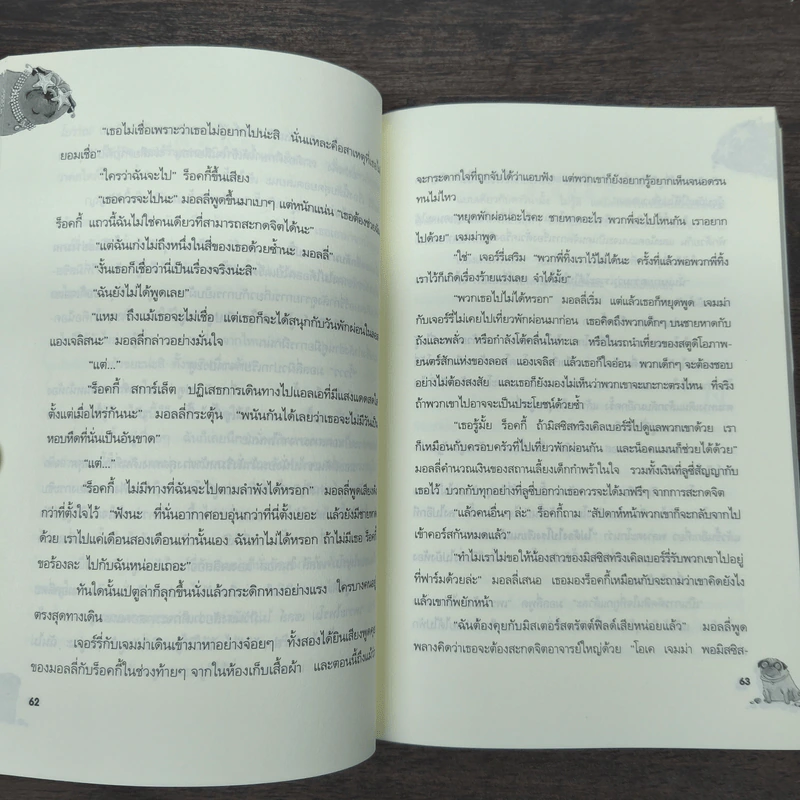 "เธอไม่เชื่อเพราะว่าเธอไม่อยากไปน่ะสิ นั่นแหละคือสาเหตุที่
ยอมเชื่อ"
"ใครว่าฉันจะไป" ร็อคกี้ขึ้นเสียง
"เธอควรจะไปนะ" มอลลี่พูดขึ้นมาเบาๆ แต่หนักแน่น "เธอต้อง
ร็อคกี้ แถวนี้ฉันไม่ใช่คนเดียวที่สามารถสะกดจิตได้นะ"
"แต่ฉันเก่งไม่ถึงหนึ่งในสี่ของเธอด้วยซ้ำนะ มอลลี่"
"งั้นเธอก็เชื่อว่านี่เป็นเรื่องจริงน่ะสิ"
"ฉันยังไม่ได้พูดเลย"
"แหม ถึงแม้เธอจะไม่เชื่อ แต่เธอก็จะได้สนุกกับวันพักผ่อนใน
แองเจลิสนะ" มอลลี่กล่าวอย่างมั่นใจ
"แต่..."
"ร็อคกี้ สการ์เล็ต ปฏิเสธการเดินทางไปแอลเอที่มีแสงแดด
ตั้งแต่เมื่อไหร่กันนะ" มอลลี่กระตุ้น "พนันกันได้เลยว่าเธอจะไม่มีวัน
หอบหืดที่นั่นเป็นอันขาด"
"แต่..."
"ร็อคกี้ ไม่มีทางที่ฉันจะไปตามลำพังได้หรอก" มอลลี่พูดเสียง
กว่าที่ตั้งใจไว้ "ฟังนะ ที่นั่นอากาศอบอุ่นกว่าที่นี่ตั้งเยอะ แล้วยังมีชายหาด
ด้วย เราไปแค่เดือนสองเดือนเท่านั้นเอง ฉันทำไม่ได้หรอก ถ้าไม่มีเธอ ร็อคกี้
ขอร้องละ ไปกับฉันหน่อยเถอะ"
ทันใดนั้นเปตูล่าก็ลุกขึ้นนั่งแล้วกระดิกหางอย่างแรง ใครบางคน
ตรงสุดทางเดิน
เจอร์รี่กับเจมม่าเดินเข้ามาหาอย่างจ๋อยๆ ทั้งสองได้ยินเสียงพูดคุย
ของมอลลี่กับร็อคกี้ในช่วงท้ายๆ จากในห้องเก็บเสื้อผ้า และตอนนี้ถึงแม้
62
จะกระดากใจที่ถูกจับได้ว่าแอบฟัง แต่พวกเขาก็ยังอยากรู้อยากเห็นจนอดรน
ทนไม่ไหว
"หยุดพักผ่อนอะไรคะ ชายหาดอะไร พวกพี่จะไปไหนกัน เราอยาก
ไปด้วย" เจมม่าพูด
"ใช่" เจอร์รี่เสริม "พวกพี่ทิ้งเราไว้ไม่ได้นะ ครั้งที่แล้วพอพวกพี่ทิ้ง
เราไว้ก็เกิดเรื่องร้ายแรงเลย จำได้มั้ย"
"พวกเธอไปไม่ได้หรอก" มอลลี่เริ่ม แต่แล้วเธอก็หยุดพูด เจมม่า
กับเจอร์รี่ไม่เคยไปเที่ยวพักผ่อนมาก่อน เธอคิดถึงพวกเด็กๆ บนชายหาดกับ
ถังและพลั่ว หรือกำลังโต้คลื่นในทะเล หรือในรถนำเที่ยวของสตูดิโอภาพ-
ยนตร์สักแห่งของลอส แองเจลิส แล้วเธอก็ใจอ่อน พวกเด็กๆ จะต้องชอบ
อย่างไม่ต้องสงสัย และเธอก็ยังมองไม่เห็นว่าพวกเขาจะเกะกะตรงไหน ที่จริง
ถ้าพวกเขาไปอาจจะเป็นประโยชน์ด้วยซ้ำ
"เธอรู้มั้ย ร็อคกี้ ถ้ามิสซิสทริงเคิลเบอร์รี่ไปดูแลพวกเขาด้วย เรา
ก็เหมือนกับครอบครัวที่ไปเที่ยวพักผ่อนกัน และน็อคแมนก็ช่วยได้ด้วย"
มอลลี่คำนวณเงินของสถานเลี้ยงเด็กกำพร้าในใจ รวมทั้งเงินที่ลูซี่สัญญากับ
เธอไว้ บวกกับทุกอย่างที่ลูซี่บอกว่าเธอควรจะได้มาฟรีๆ จากการสะกดจิต
"แล้วคนอื่นๆ ล่ะ" ร็อคกี้ถาม "สัปดาห์หน้าพวกเขาก็จะกลับจากไป
เข้าคอร์สกันหมดแล้ว"
"ทำไมเราไม่ขอให้น้องสาวของมิสซิสทริงเคิลเบอร์รี่รับพวกเขาไปอยู่
ที่ฟาร์มด้วยล่ะ" มอลลี่เสนอ เธอมองร็อคกี้เหมือนกับจะถามว่าเขาคิดยังไง
แล้วเขาก็พยักหน้า
"ฉันต้องคุยกับมิสเตอร์สตรัตต์ฟิลด์เสียหน่อยแล้ว" มอลลี่พูด
พลางคิดว่าเธอจะต้องสะกดจิตอาจารย์ใหญ่ด้วย "โอเค เจมม่า พอมิสซิส-
63